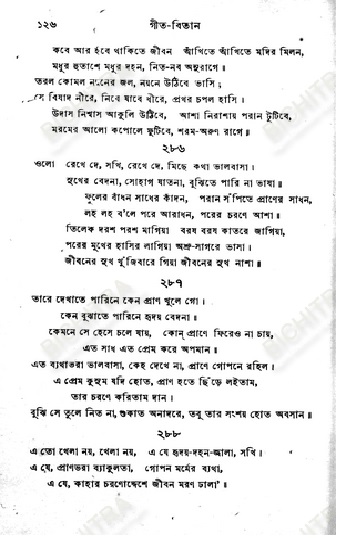 ১২৬ গীত-বিতান
কবে আর হবে থাকিতে জীবন আঁখিতে আঁখিতে মদির মিলন,
মধুর হুতাশে মধুর দহন, নিত-নব অনুরাগে॥
তরল কোমল নয়নের জল, নয়নে উঠিবে ভাসি;
সে বিষাদ নীরে, নিবে যাবে ধীরে, প্রখর চপল হাসি।
উদাস নিশ্বাস আকুলি উঠিবে, আশা নিরাশায় পরান টুটিবে,
মরমের আলো কপোলে ফুটিবে, শরম-অরুণ রাগে॥
২৮৬
ওলো রেখে দে, সখি, রেখে দে, মিছে কথা ভালবাসা।
সুখের বেদনা, সোহাগ যাতনা, বুঝিতে পারি না ভাষা॥
ফুলের বাঁধন সাধের কাঁদন, পরান সঁপিতে প্রাণের সাধন,
লহ লহ ব'লে পরে আরাধন, পরের চরণে আশা।
তিলেক দরশ পরশ মাগিয়া বরষ বরষ কাতরে জাগিয়া,
পরের মুখের হাসির লাগিয়া অশ্রু-সাগরে ভাসা।
জীবনের সুখ খুঁজিবারে গিয়া জীবনের সুখ নাশা॥
২৮৭
তারে দেখাতে পারিনে কেন প্রাণ খুলে গো।
কেন বুঝাতে পারিনে হৃদয় বেদনা।
কেমনে সে হেসে চলে যায়, কোন্ প্রাণে ফিরেও না চায়,
এত সাধ এত প্রেম করে অপমান॥
এত ব্যথাভরা ভালবাসা, কেহ দেখে না, প্রাণে গোপনে রহিল।
এ প্রেম কুসুম যদি হোত, প্রাণ হতে ছিঁড়ে লইতাম,
তার চরণে করিতাম দান।
বুঝি সে তুলে নিত না, শুকাত অনাদরে, তবু তার সংশয় হোত অবসান॥
২৮৮
এ তো খেলা নয়, খেলা নয়, এ যে হৃদয়-দহন-জ্বালা, সখি।
এ যে, প্রাণভরা ব্যাকুলতা, গোপন মর্মের ব্যথা,
এ যে, কাহার চরণোদ্দেশে জীবন মরণ ঢালা॥